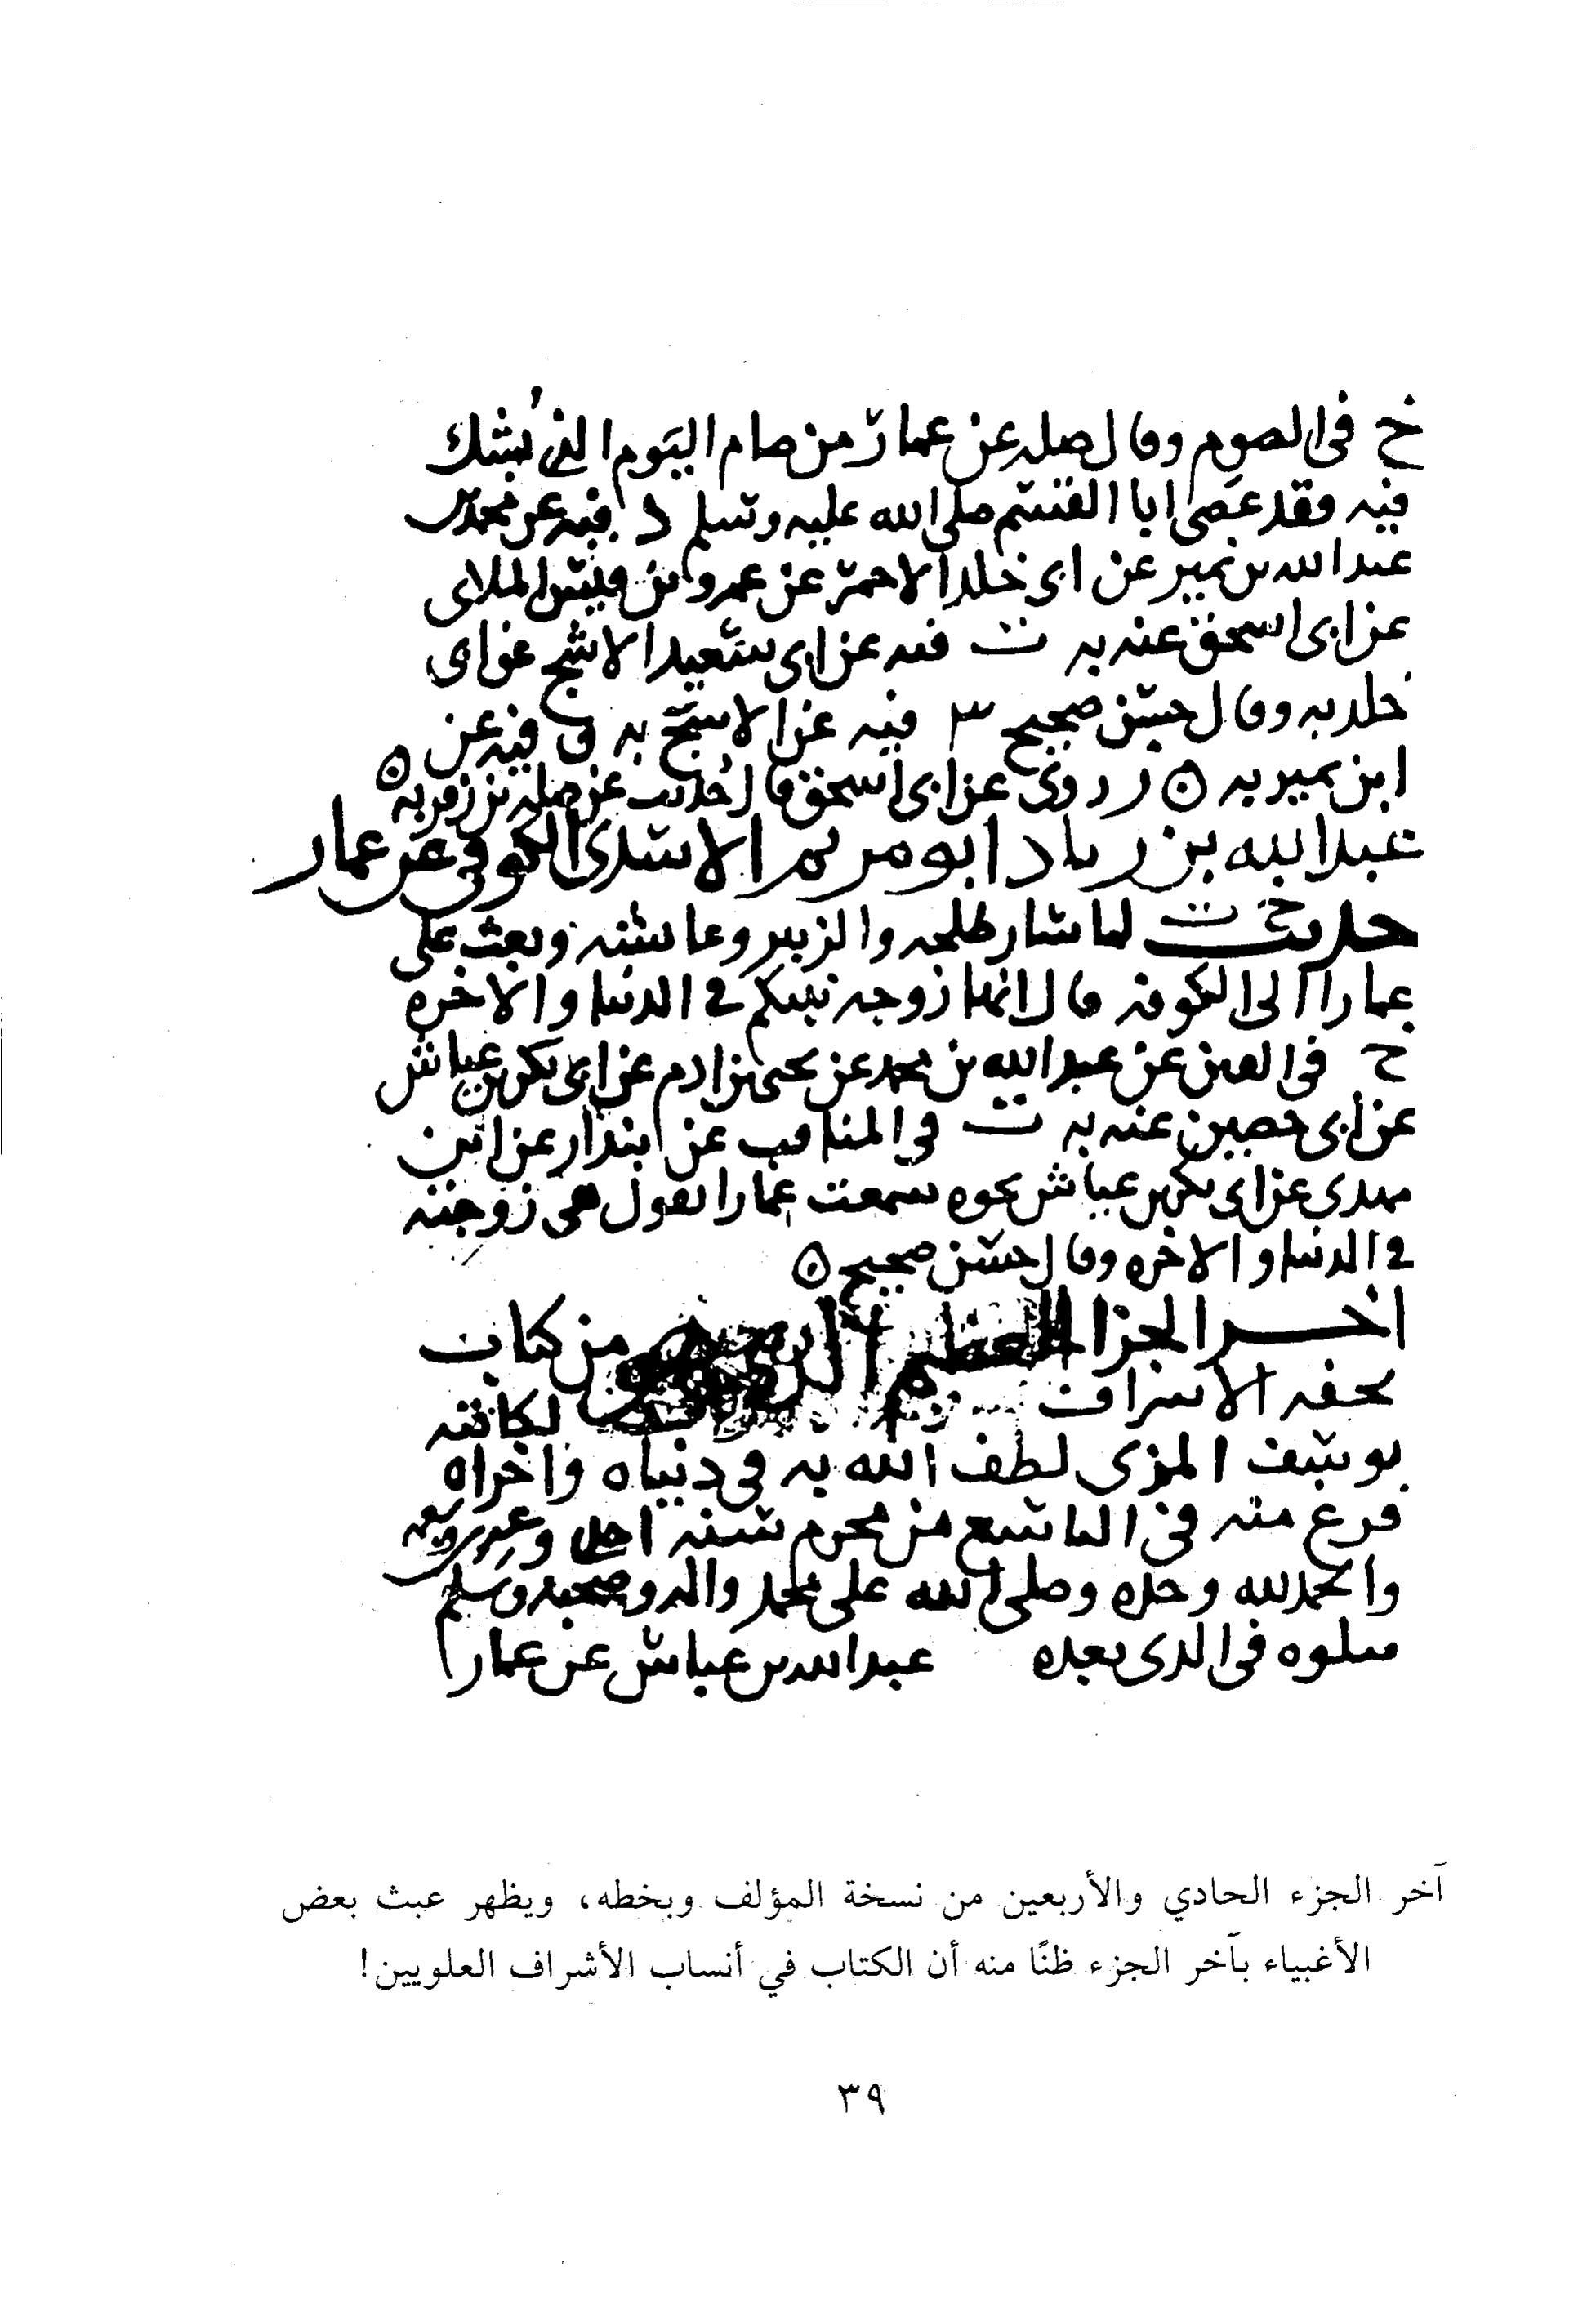 خ في الصوم وقال صله عن عمار من صام اليوم الذي يُشك
فيه فقد عصى ابا القسم صلى الله عليه وسلم د فيه عن محمد بن
عبد الله بن نمير عن ابي خلد الاحمر عن عمرو بن قيس الملاي
عن ابي اسحق عنه به ت فيه عن ابي سعيد الاشج عن ابي
خلد به وقال حسن صحيح س فيه عن الاشج به ق فيه عن
ابن نمير به ه ز روي عن ابي اسحق قال حُدثت عن صله بن زفر به ه
عبد الله بن زياد ابو مريم الاسدي الكوفي عن عمار
حديث خ ت لما سار طلحه والزبير وعائشه وبعث علي
عمارا الى الكوفه قال انها زوجه نبيكم في الدنيا والاخره
خ في الفتن عن عبد الله بن محمد عن يحيى بن ادم عن ابي بكر بن عياش
عن ابي حصين عنه به ت في المناقب عن بندار عن ابن
مهدي عن ابي بكر بن عياش نحوه سمعت عمارا يقول هي زوجته
في الدنيا والاخره وقال حسن صحيح ه
اخر الجز من كتاب
تحفه الاشراف لكاتبه
يوسف المزي لطف الله به في دنياه واخراه
فرغ منه في التاسع من محرم سنه احدى وعشرين وسبعمايه
والحمد لله وحده وصلى الله على محمد واله وصحبه وسلم
يتلوه في الذي بعده عبد الله بن عباس عن عمار
آخر الجزء الحادي والأربعين من نسخة المؤلف وبخطه، ويظهر عبث بعض
الأغبياء بآخر الجزء ظنًا منه أن الكتاب في أنساب الأشراف العلويين!
٣٩